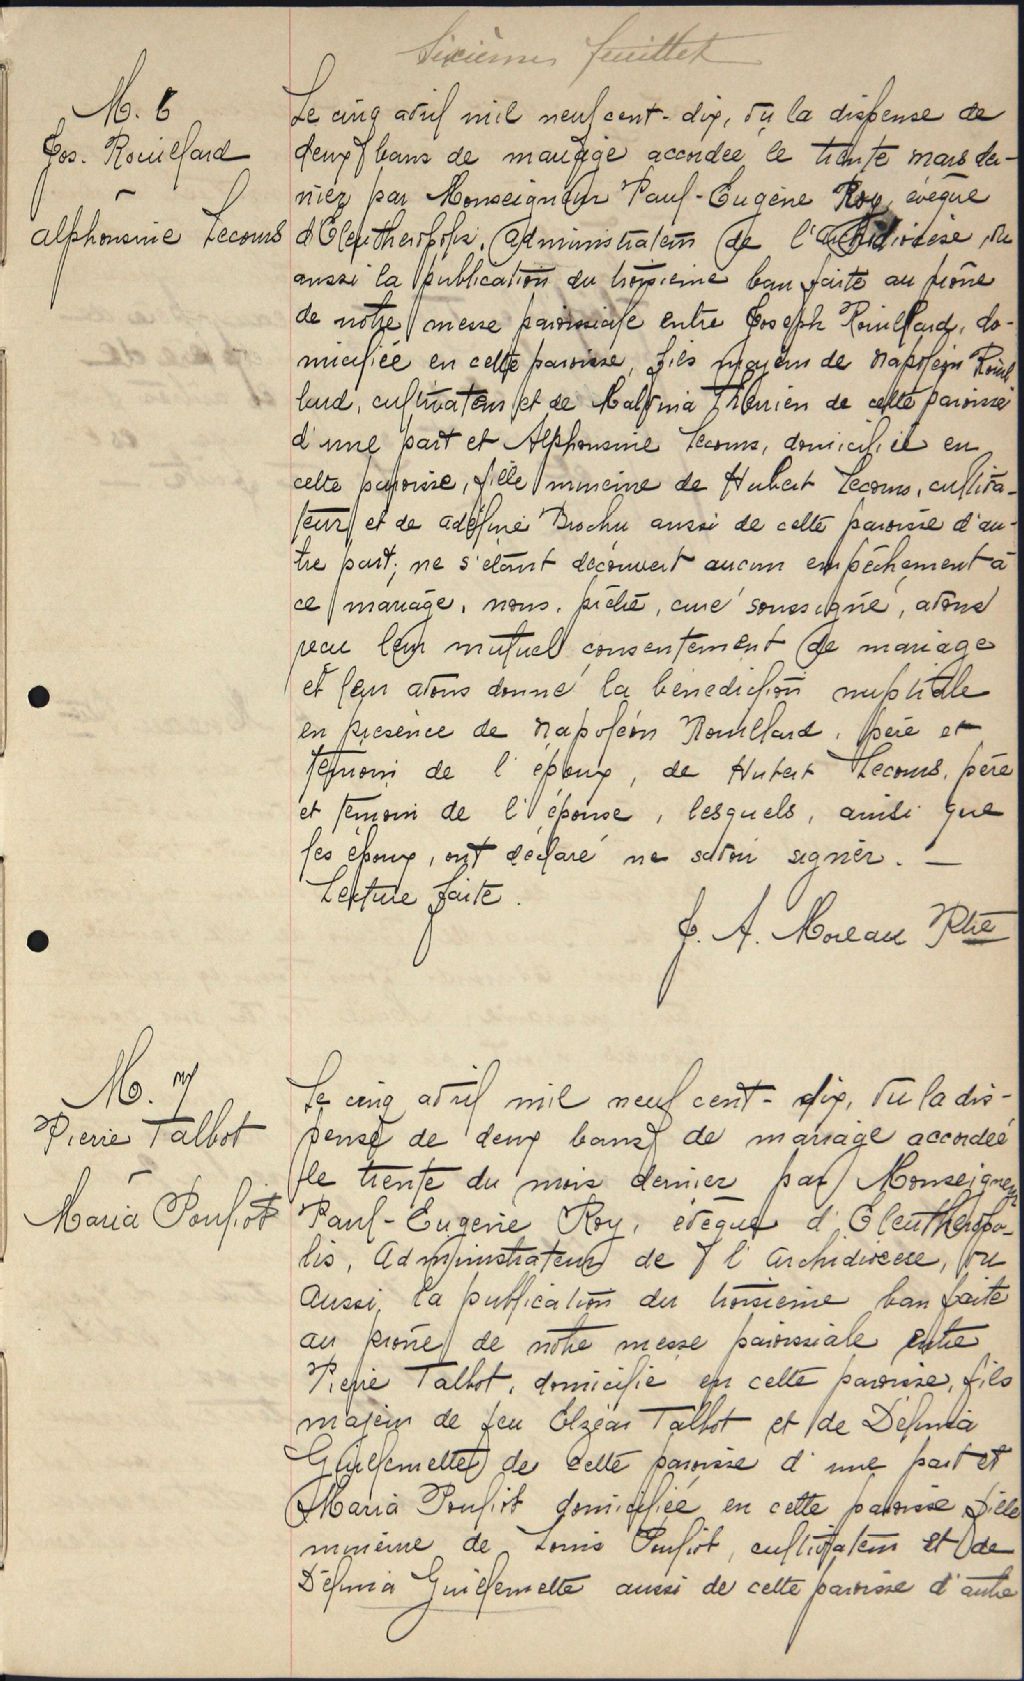 Sixième feuillet
M. 6
Jos. Rouillard
-
Alphonsine Lecours
Le cinq avril mil neuf cent-dix, vu la dispense de
deux bans de mariage accordée le trente mars der-
nier par Monseigneur Paul-Eugène Roy, évêque
d'Eleuthéropolis, Administrateur de l'archidiocèse, vu
aussi la publication du troisième ban faite au prône
de notre messe paroissiale entre Joseph Rouillard, do-
miciliée en cette paroisse, fils majeur de Napoléon Rouil
lard, cultivateur et de Malvina Therrien de cette paroisse
d'une part et Alphonsine Lecours, domiciliée en
cette paroisse, fille mineure de Hubert Lecours, cultiva-
teur et de Adéline Brochu aussi de cette paroisse d'au-
tre part; ne s'étant découvert aucun empêchement à
ce mariage, nous, prêtre, curé soussigné, avons
reçu leur mutuel consentement de mariage
et leur avons donné la bénédiction nuptiale
en présence de Napoléon Rouillard, père et
témoin de l'époux, de Hubert Lecours, père
et témoin de l'épouse, lesquels, ainsi que
les époux, ont déclaré ne savoir signer. —
Lecture faite.
J. A. Moreau Ptre
M. 7
Pierre Talbot
-
Maria Pouliot
Le cinq avril mil neuf cent-dix, vu la dis-
pense de deux bans de mariage accordée
le trente du mois dernier par Monseigneur
Paul-Eugène Roy, évêque d'Eleuthéropo-
lis, Administrateur de l'Archidiocèse, vu
aussi, la publication du troisième ban faite
au prône de notre messe paroissiale entre
Pierre Talbot, domicilié en cette paroisse, fils
majeur de feu Elzéar Talbot et de Délima
Guillemette de cette paroisse d'une part et
Maria Pouliot domiciliée en cette paroisse fille
mineure de Louis Pouliot, cultivateur et de
Délima Guillemette aussi de cette paroisse d'autre